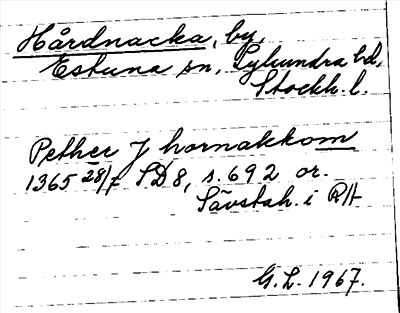 Hårdnacka, by,
Estuna sn, Lyhundra hd,
Stockh. l.
Pether J hornakkom
1365 28/7 SD 8, s. 692 or.
Sävstah. i RA
G. L. 1967.